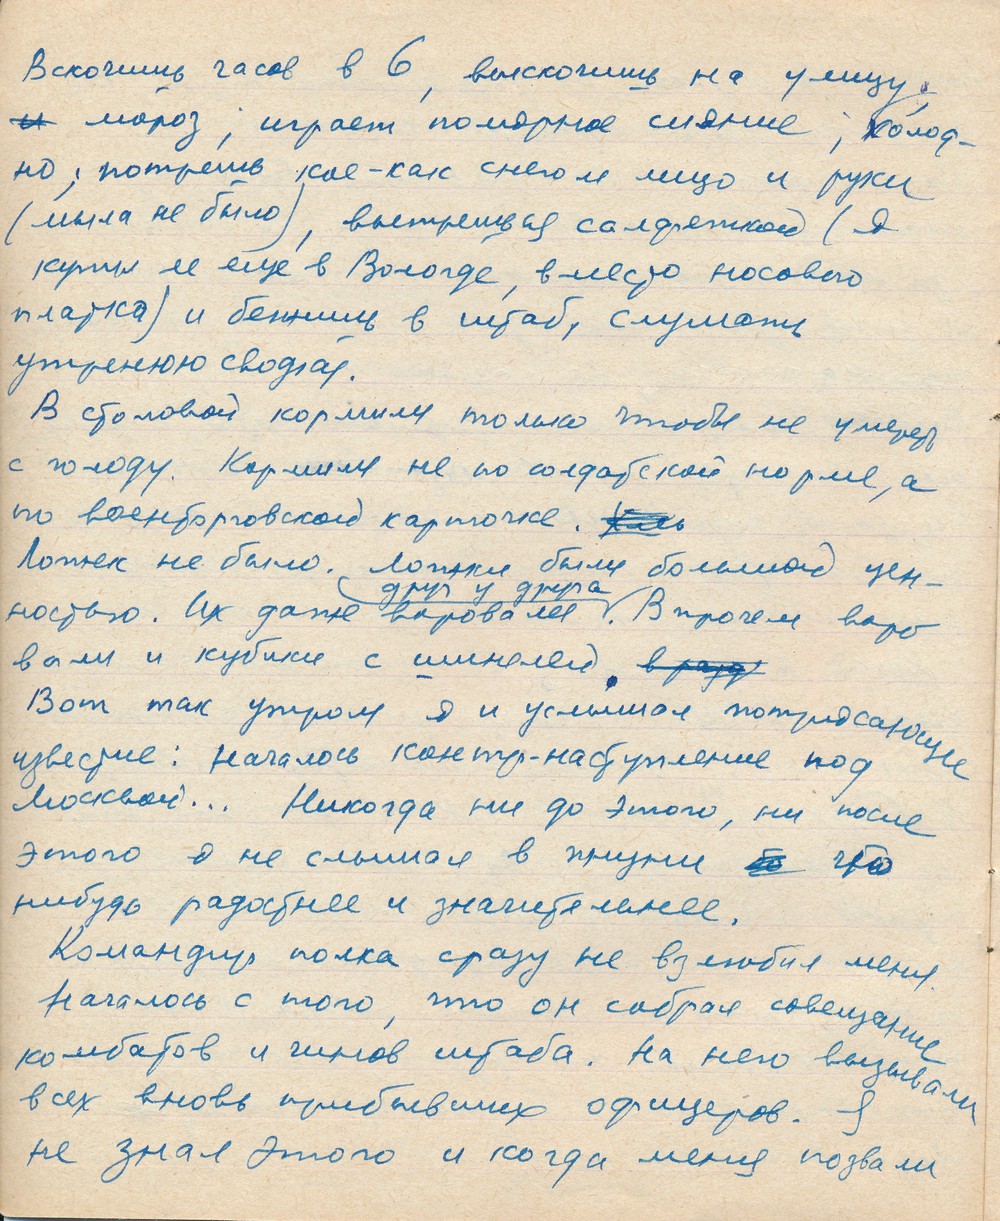 Вскочишь часов в 6, выскочишь на улицу;
мороз; играет полярное сияние; холод-
но; потрешь кое-как снегом лицо и руки
(мыла не было), вытрешься салфеткой (я
купил ее еще в Вологде, вместо носового
платка) и бежишь в штаб, слушать
утреннюю сводку.
В столовой кормили только чтобы не умереть
с голоду. Кормили не по солдатской норме, а
по военторговской карточке.
Ложек не было. Ложки были большой цен-
друг у друга
ностью. Их даже воровали. Впрочем воро
вали и кубики с шинелей.
Вот так утром я и услышал потрясающее
известие: началось контр-наступление под
Москвой... Никогда ни до этого, ни после
этого я не слышал в жизни что
нибудь радостнее и значительнее.
Командир полка сразу не взлюбил меня.
Началось с того, что он собрал совещание
комбатов и чинов штаба. На него вызывали
всех вновь прибывших офицеров. Я
не знал этого и когда меня позвали